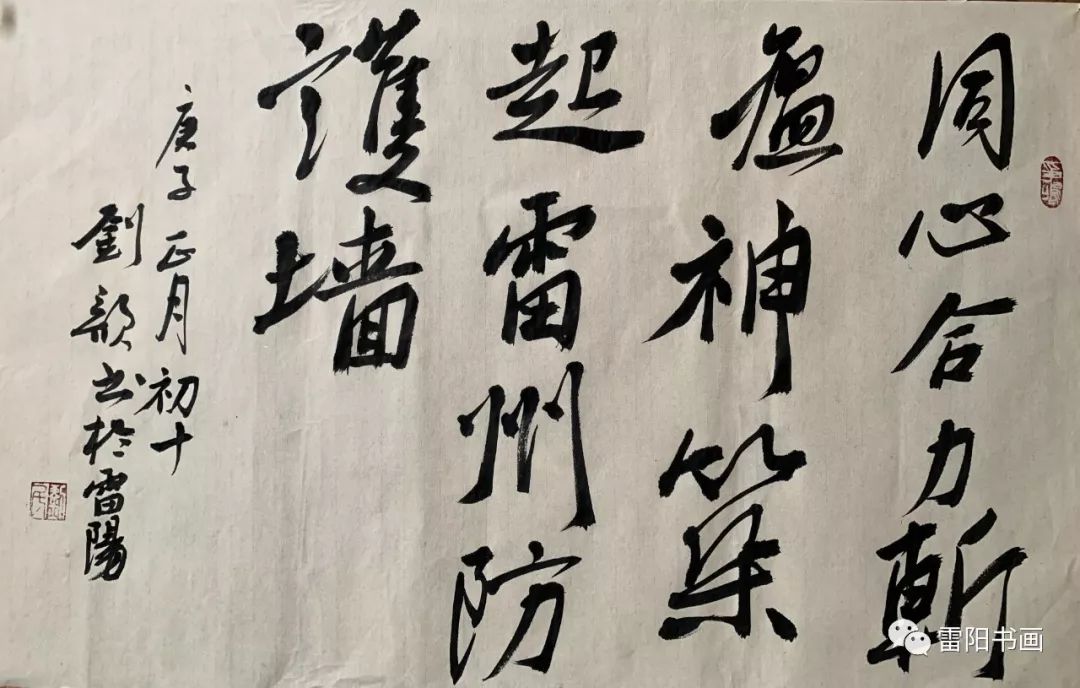 同心合力斬
瘟神築
起雷州防
護墙
庚子正月初十
劉歆书於雷陽
雷阳书画